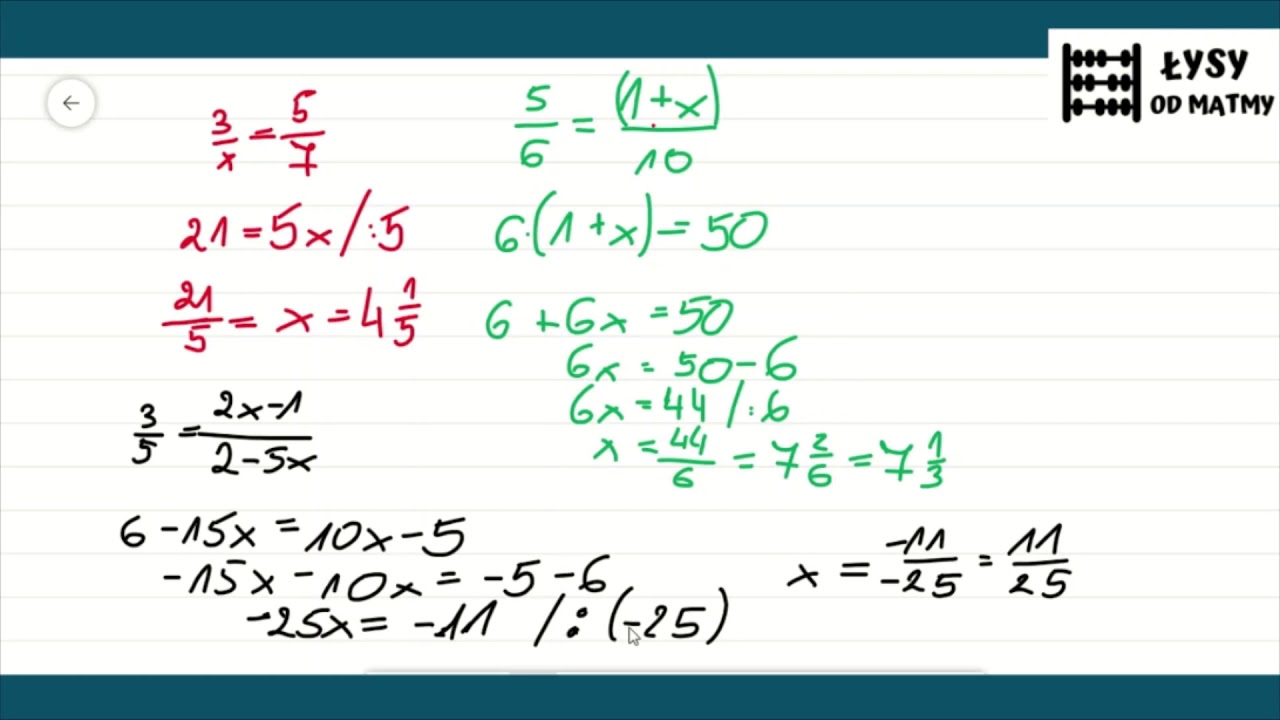 ŁYSY
OD MATMY
3/x = 5/7
21 = 5x /:5
21/5 = x = 4 1/5
5/6 = (1+x)/10
6·(1+x) = 50
6 + 6x = 50
6x = 50 - 6
6x = 44 /:6
x = 44/6 = 7 2/6 = 7 1/3
3/5 = 2x-1/2-5x
6 - 15x = 10x - 5
-15x - 10x = -5 - 6
-25x = -11 /:(-25)
x = -11/-25 = 11/25